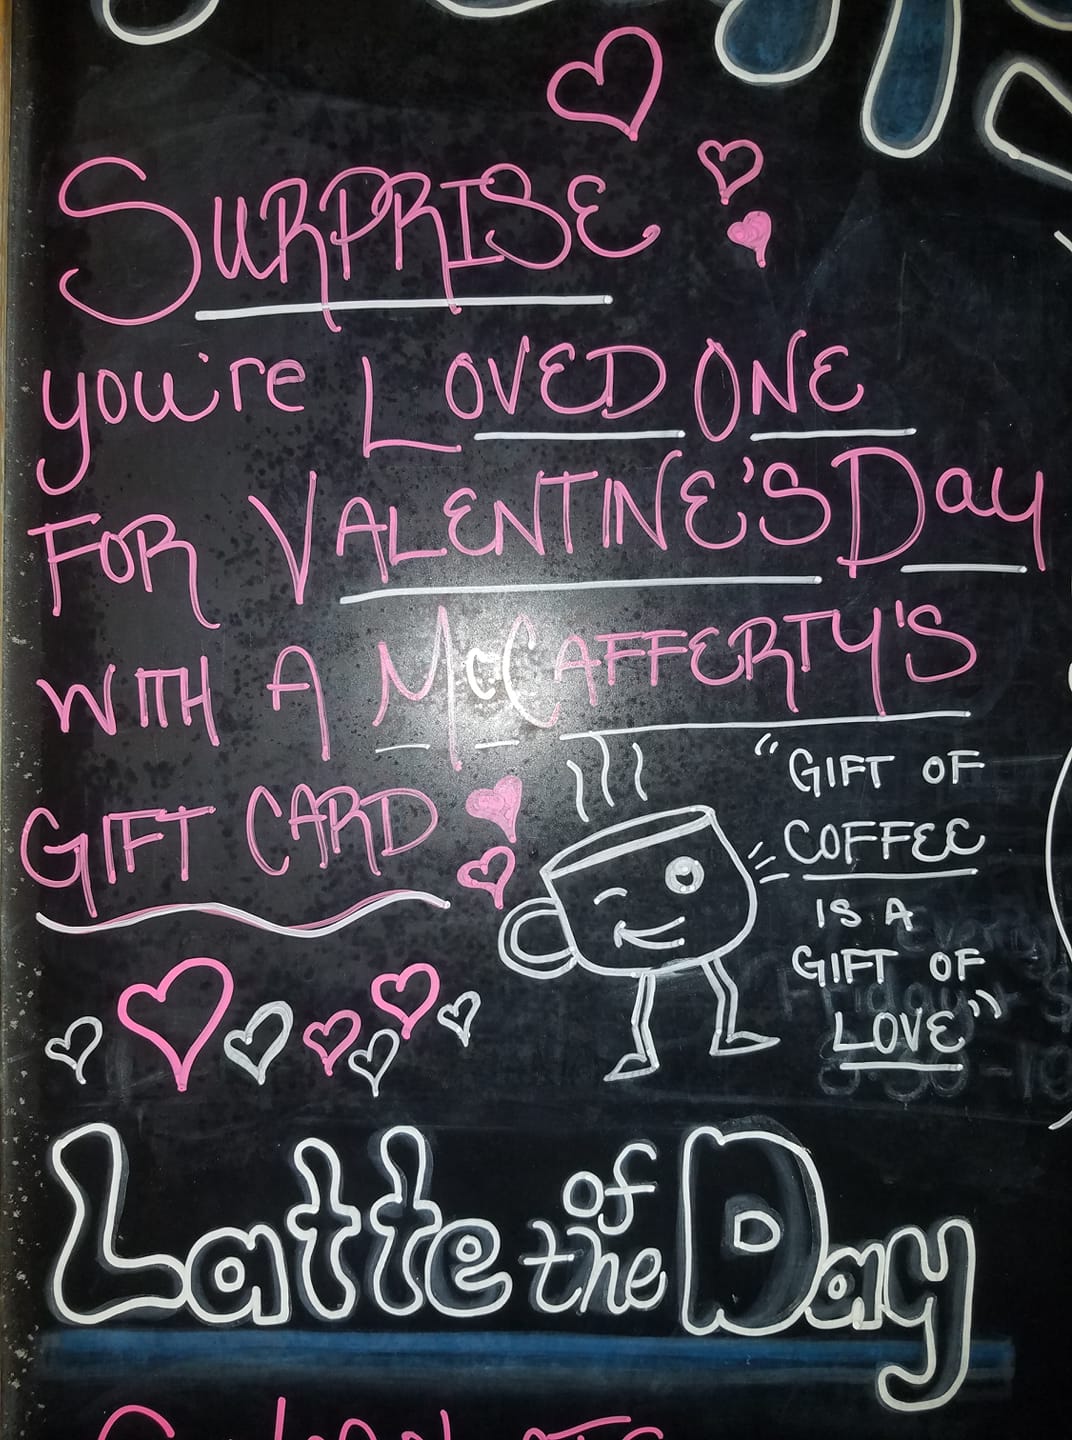 SURPRISE
you're LOVED ONE
FOR VALENTINE'S Day
WITH A McCAFFERTY'S
GIFT CARD
"GIFT OF
COFFEE
IS A
GIFT OF
LOVE"
Latte of the Day